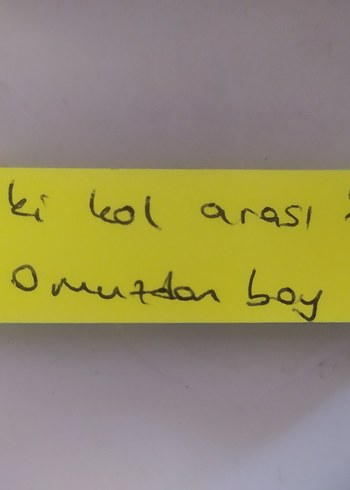 ki kol arası
Omuzdan boy